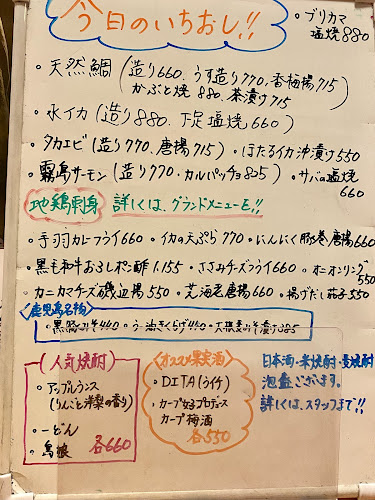 今日のいちおし!!
・ブリカマ塩焼880
・天然鯛(造り660、うす造り770、香梅揚715
かぶと焼880、茶漬け715)
・水イカ(造り880、下足塩焼660)
・タカエビ(造り770、唐揚715)・ほたるイカ沖漬け550
・霧島サーモン(造り770・カルパッチョ825)・サバの塩焼660
地鶏刺身 詳しくは、グランドメニューを!!
・手羽カレーフライ660・イカの天ぷら770・にんにく豚巻唐揚660
・黒毛和牛おろしポン酢1.155・ささみチーズフライ660・オニオンリング550
・カニカマチーズ磯辺揚550・荒海老唐揚660・揚げだし茄子550
鹿児島名物
・黒豚みそ440・ラー油きくらげ440・大根麦みそ漬け385
(人気焼酎)
・アップルランス
(りんごと洋梨の香り)
・一どん
・島娘
各660
オススメ果実酒
・DITA(ライチ)
・カープ女子プロデュース
カープ梅酒
各550
日本酒・米焼酎・麦焼酎
泡盛ございます。
詳しくは、スタッフまで!!